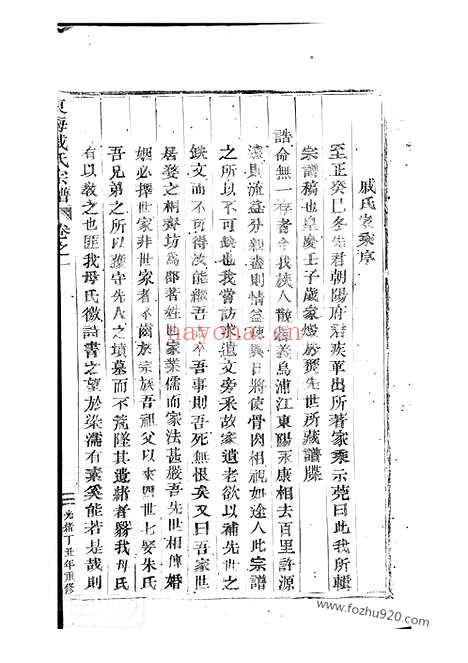 戚氏家乘序
至正癸巳冬先君朝陽府君疾革出所著家乘示莞曰此我所輯
宗譜稿也皇慶壬子歲家燬於煑先世所藏譜牒
誥命無一存者今我族人散處義烏浦江東陽永康相去百里許源
遠則流益分親盡則情益疎異日將使骨肉相視如途人此宗譜
之所以不可缺也我嘗訪求遺文旁采故家遺老欲以補先世之
缺文而不可得汝能繼吾志卒吾事則吾死無恨矣又曰吾家世
居婺之桐齊坊為郡著姓世家業儒而家法甚嚴吾先世相傳婚
姻必擇世家非世家者不齒於宗族吾祖父以來四世七娶朱氏
吾兄弟之所以獲守先人之墳墓而不荒墜其遺緒者繄我母氏
有以教之也匪我母氏徽詩書之望於染濡有素奚能若是哉則
東海戚氏宗譜 卷之一
一 光緒丁丑年重修
hayona.cn
www.fozhu920.com